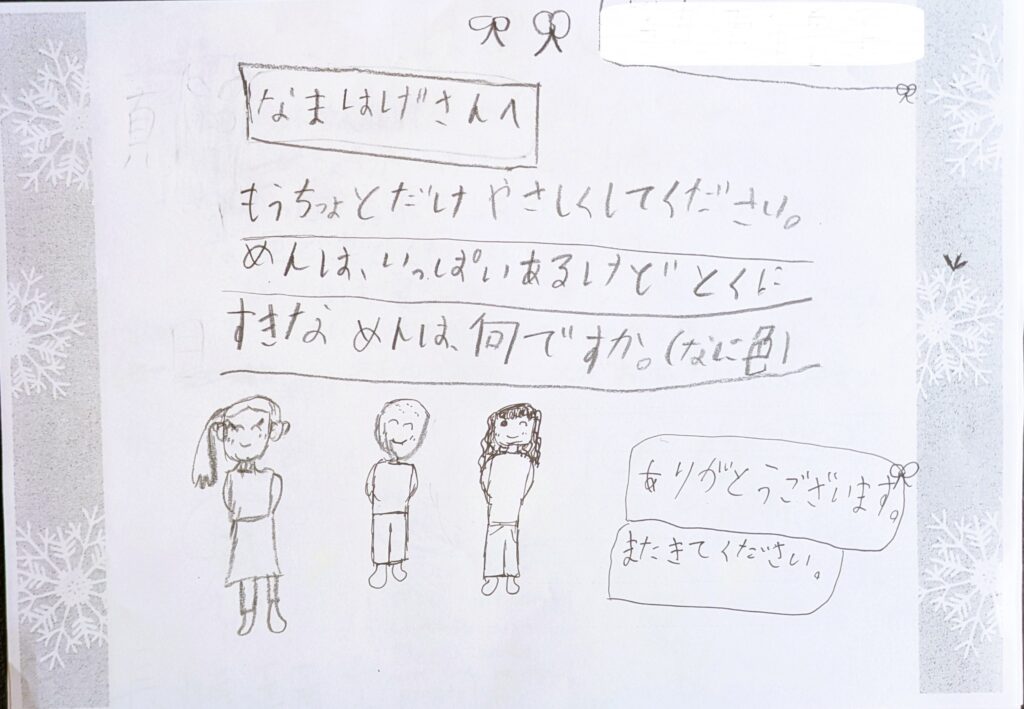 なまはげさんへ
もうちょとだけ やさしくしてください。
めんは、いっぱいあるけど とくに
すきな めんは、何ですか。(なに色)
ありがとうございます。
またきてください。